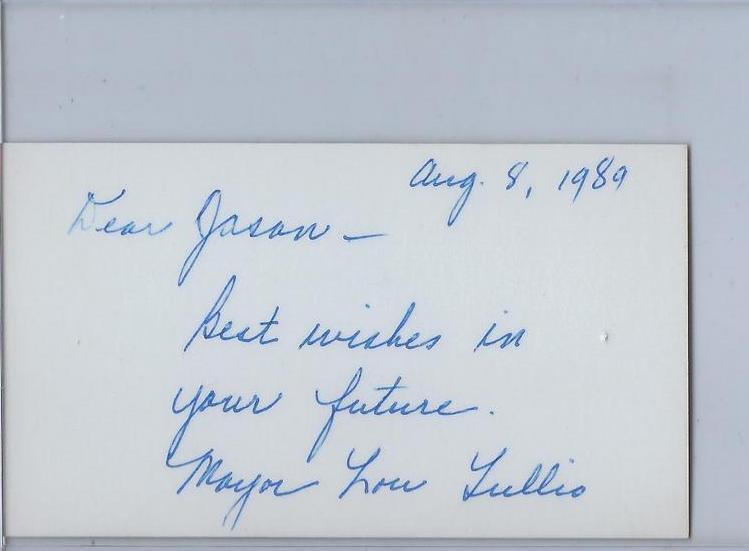 Aug. 8, 1989
Dear Jason —
Best wishes in
your future.
Mayor Lou Tullio